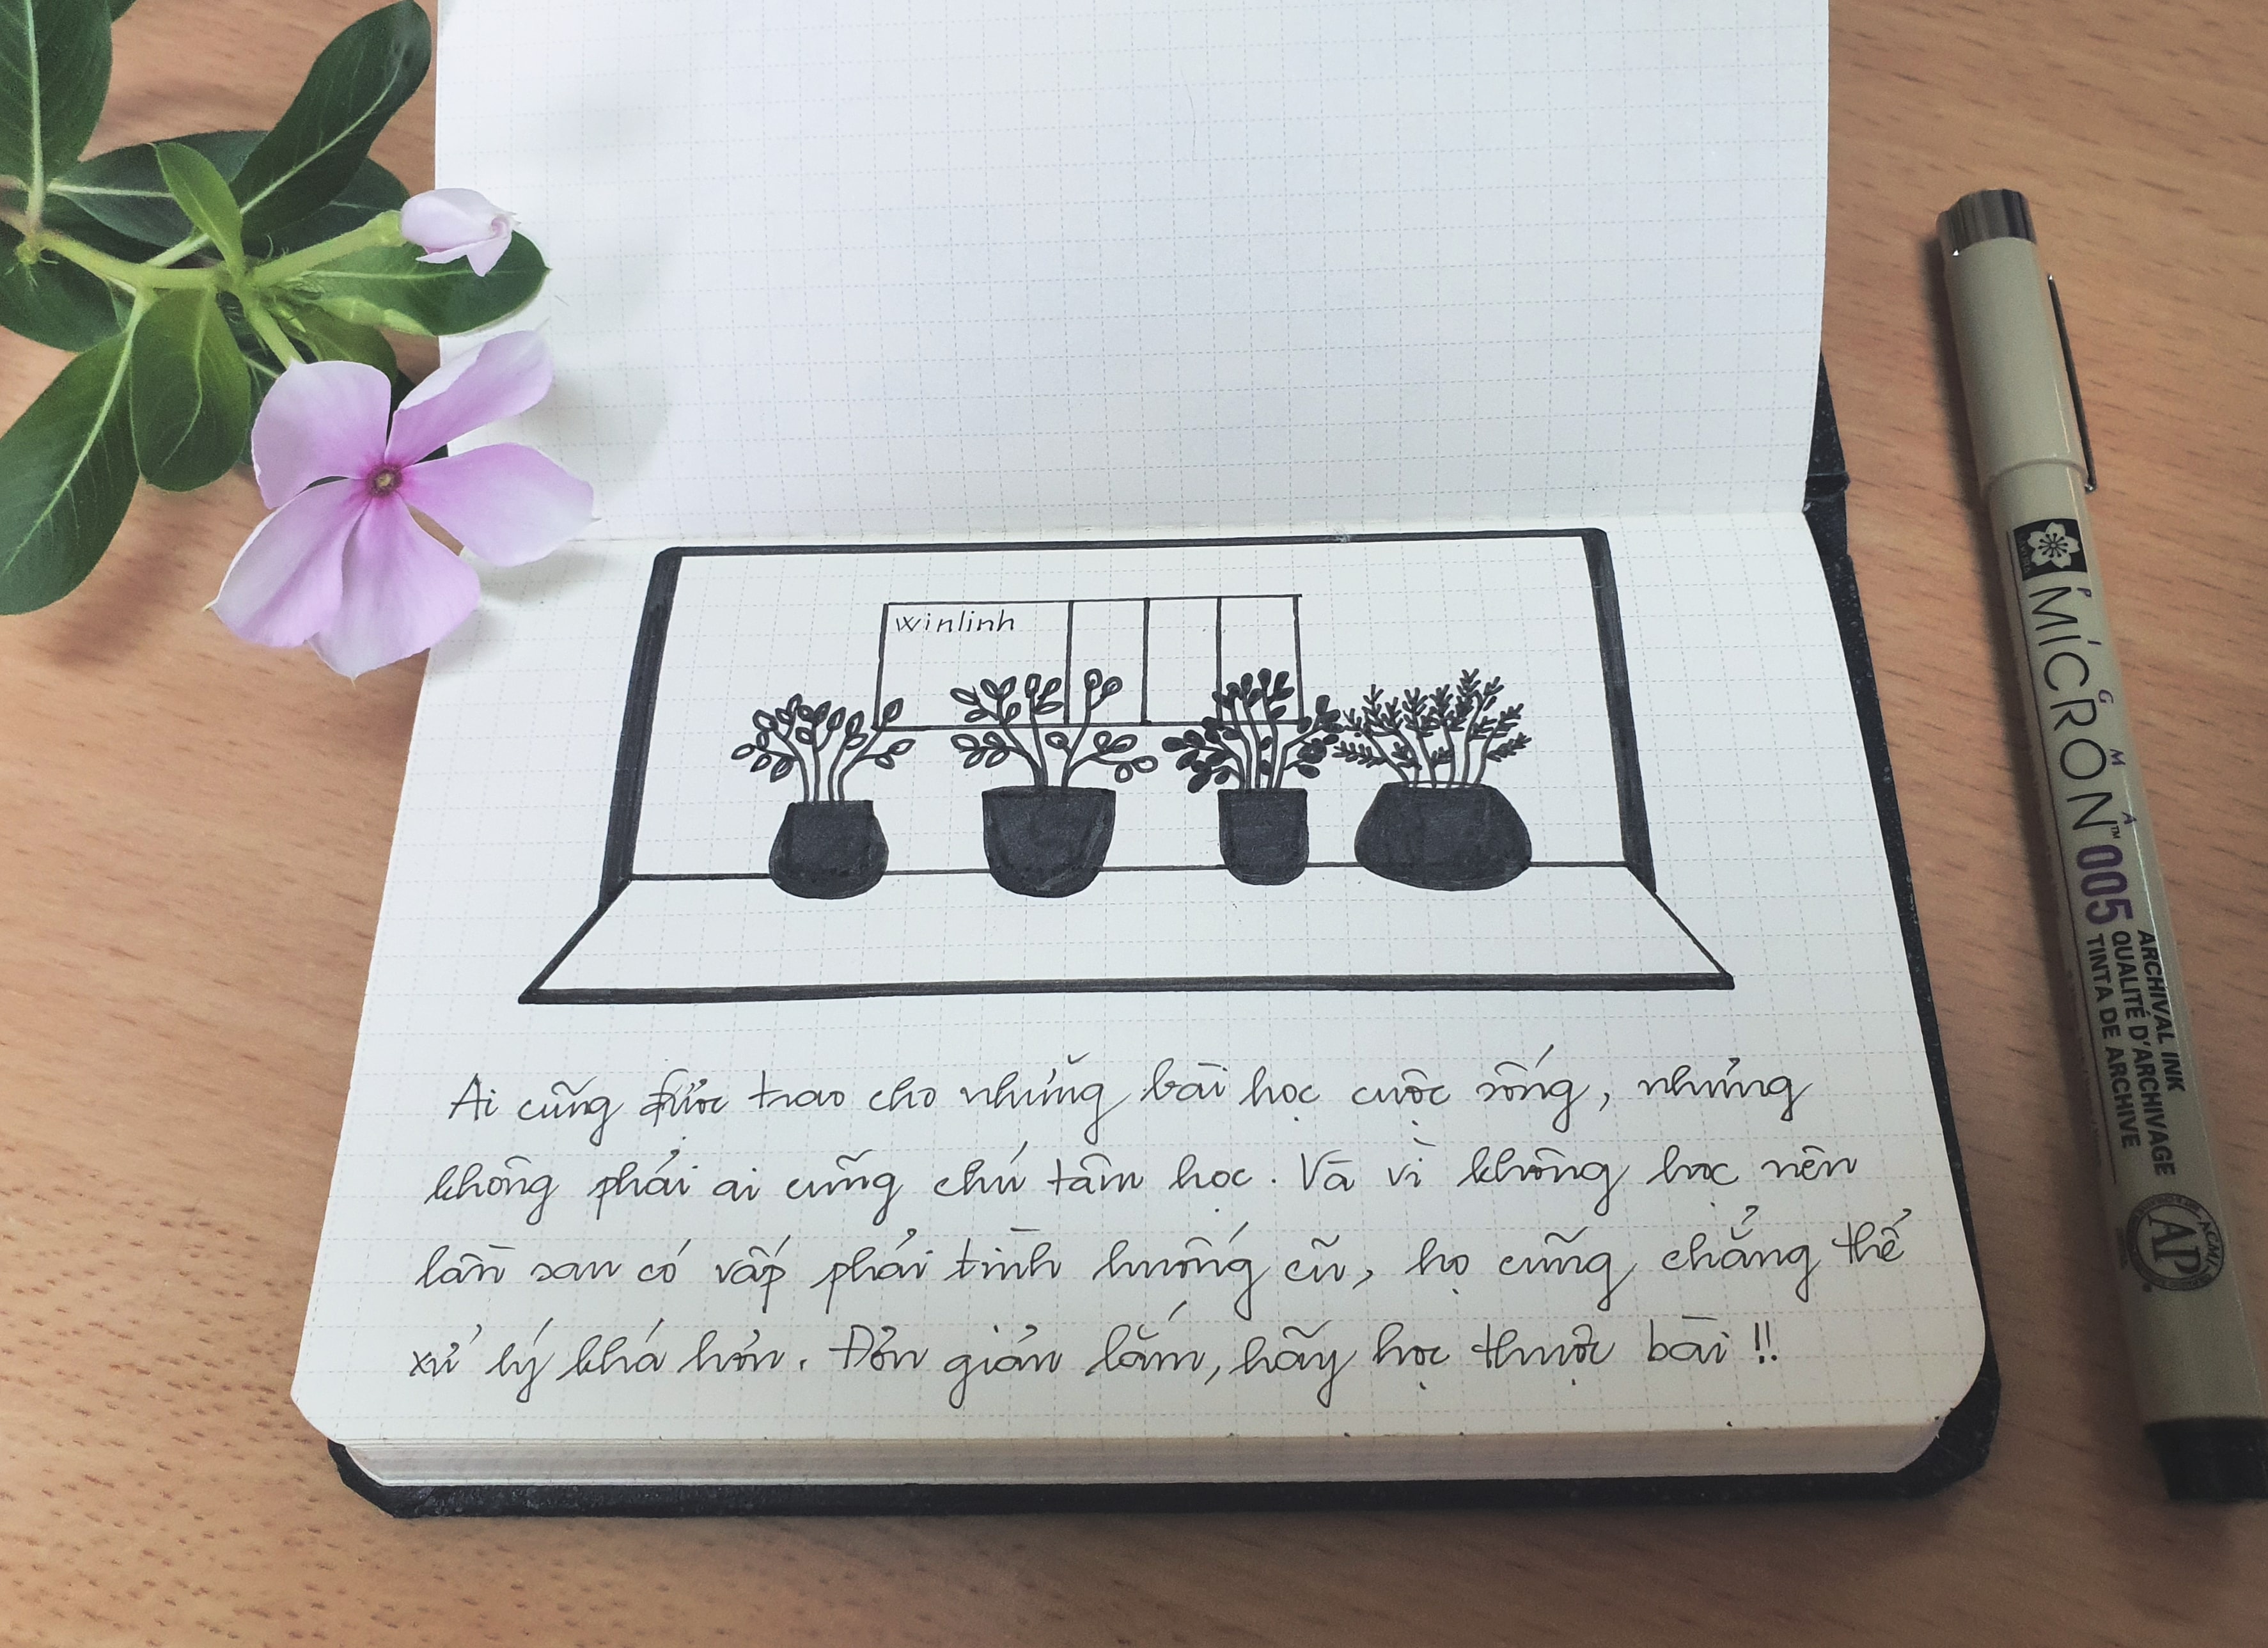 winlinh
Ai cũng được trao cho những bài học cuộc sống, nhưng
không phải ai cũng chú tâm học. Và vì không học nên
lần sau có vấp phải tình huống cũ, họ cũng chẳng thể
xử lý khá hơn. Đơn giản lắm, hãy học thuộc bài !!
PIGMA
MICRON™ 005
ARCHIVAL INK
QUALITÉ D'ARCHIVAGE
TINTA DE ARCHIVE
AP
ACMI